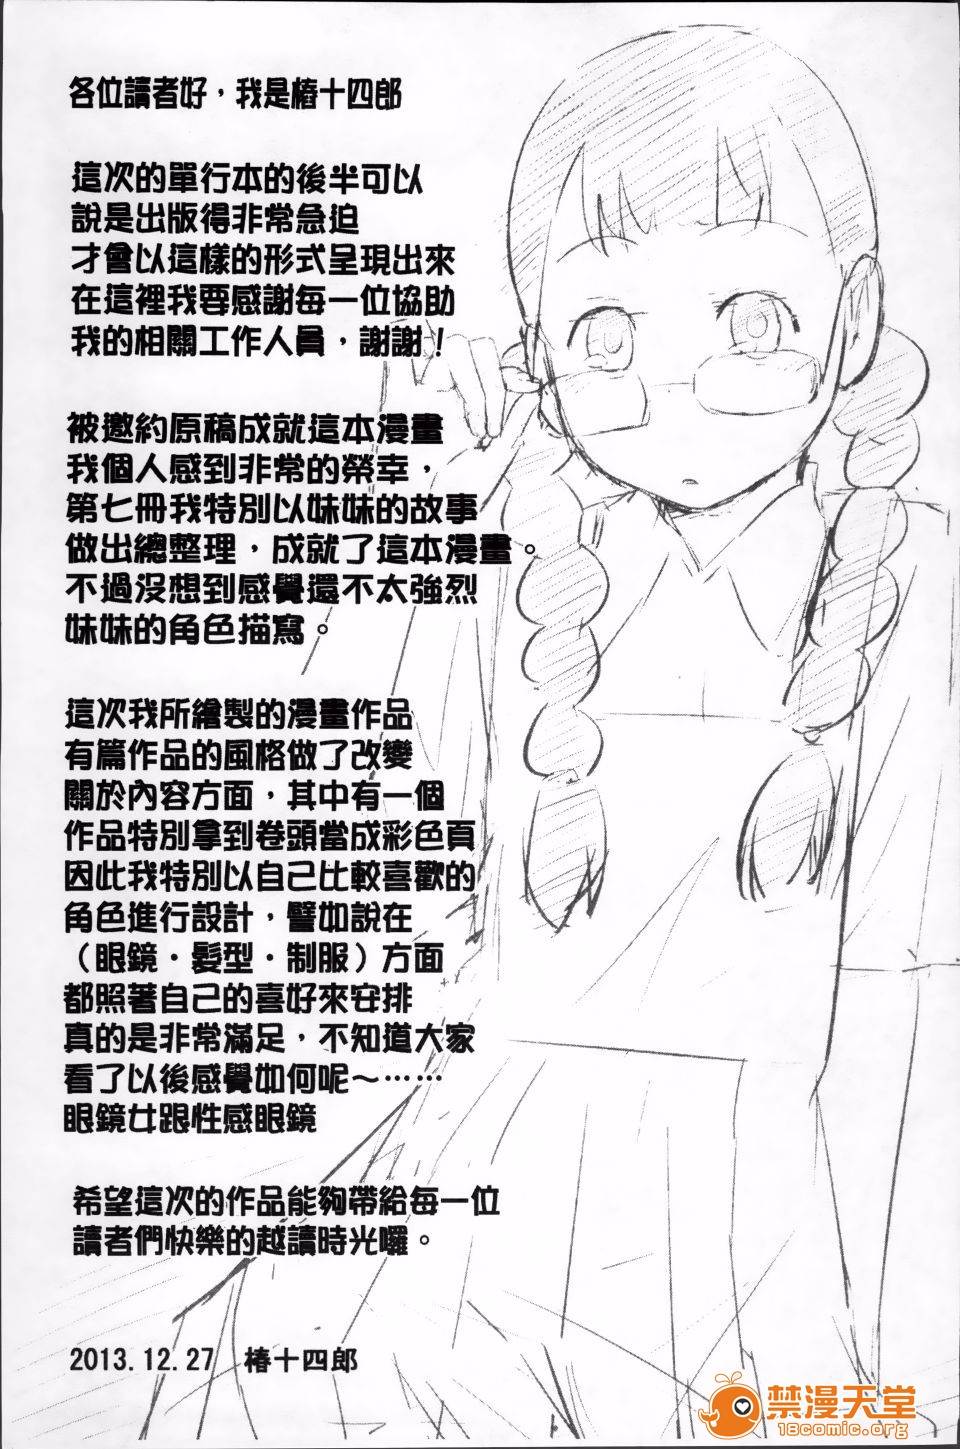 各位讀者好，我是椿十四郎
這次的單行本的後半可以
說是出版得非常急迫
才會以這樣的形式呈現出來
在這裡我要感謝每一位協助
我的相關工作人員，謝謝！
被邀約原稿成就這本漫畫
我個人感到非常的榮幸，
第七冊我特別以妹妹的故事
做出總整理，成就了這本漫畫。
不過沒想到感覺還不太強烈
妹妹的角色描寫。
這次我所繪製的漫畫作品
有篇作品的風格做了改變
關於內容方面，其中有一個
作品特別拿到卷頭當成彩色頁
因此我特別以自己比較喜歡的
角色進行設計，譬如說在
（眼鏡·髮型·制服）方面
都照著自己的喜好來安排
真的是非常滿足，不知道大家
看了以後感覺如何呢～……
眼鏡女跟性感眼鏡
希望這次的作品能夠帶給每一位
讀者們快樂的越讀時光囉。
2013.12.27 椿十四郎
禁漫天堂
18comic.org